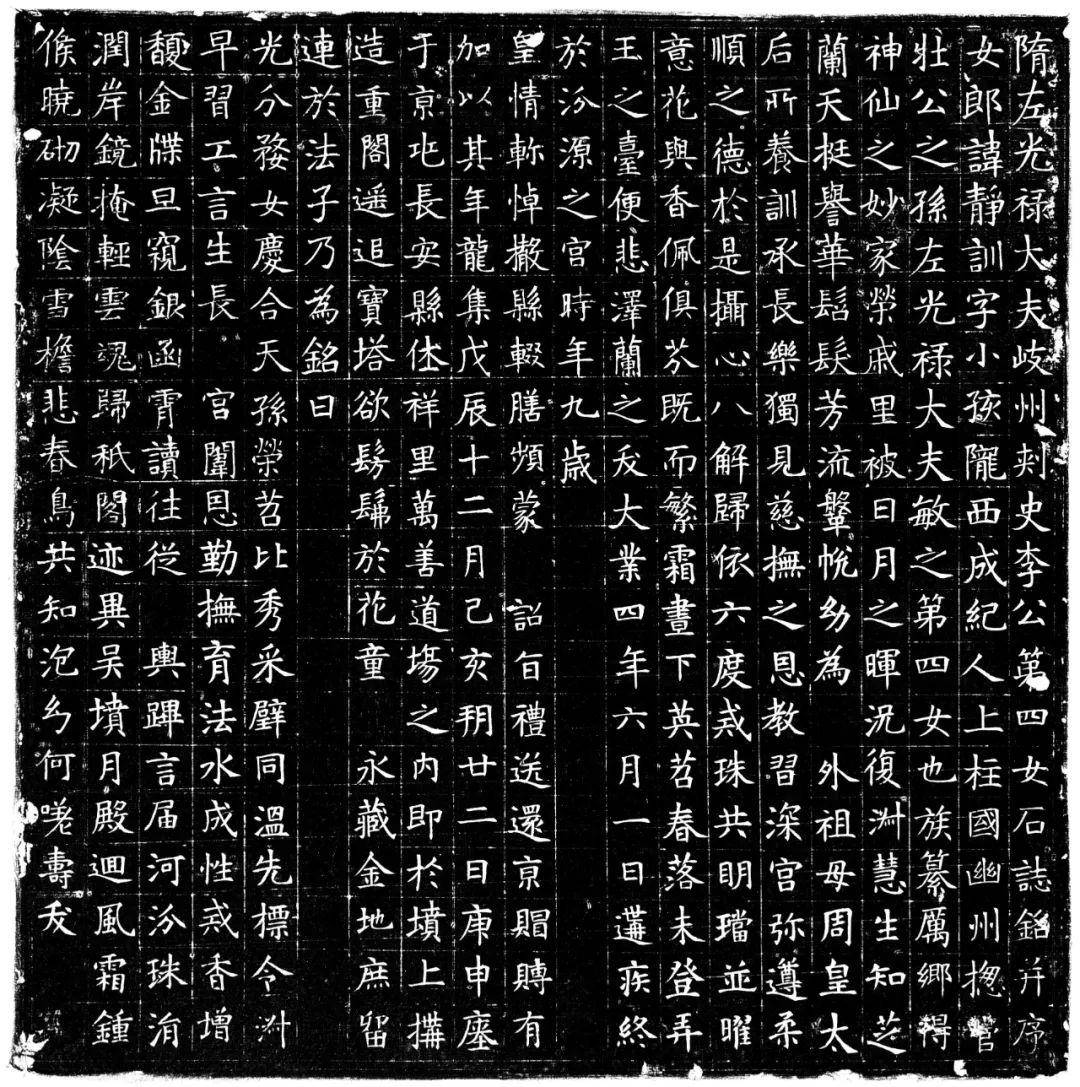 隋左光禄大夫岐州刺史李公第四女石誌銘并序
女郎諱靜訓字小孩隴西成紀人上柱國幽州揔管
壮公之孫左光禄大夫敏之第四女也族纂厲鄉得
神仙之妙家榮戚里被日月之暉況復淋慧生知芝
蘭天挺譽華髫髮芳流鞶帨幼為　外祖母周皇太
后所養訓承長樂獨見慈撫之恩教習深宮弥遵柔
順之德於是攝心八解歸依六度戒珠共明璫並曜
意花與香佩俱芬既而繁霜晝下英苕春落未登弄
玉之臺便悲澤蘭之夭大業四年六月一日遘疾終
於汾源之宮時年九歲
皇情軫悼撤縣輟膳頻蒙　詔旨禮送還京賵賻有
加以其年龍集戊辰十二月己亥朔廿二日庚申瘞
于京兆長安縣休祥里萬善道場之内即於墳上搆
造重閣遥追寶塔欲髣髴於花童　永藏金地庶留
連於法子乃為銘曰
光分婺女慶合天孫榮苕比秀采璧同溫先標令淋
早習工言生長　宮闈恩勤撫育法水成性戒香增
馥金牒旦窺銀函霄讀往從　輿蹕言届河汾珠㳙
潤岸鏡掩輕雲魂歸秪閣迹異吳墳月殿迴風霜鍾
候曉砌凝陰雪檐悲春鳥共知泡幻何嗟壽夭